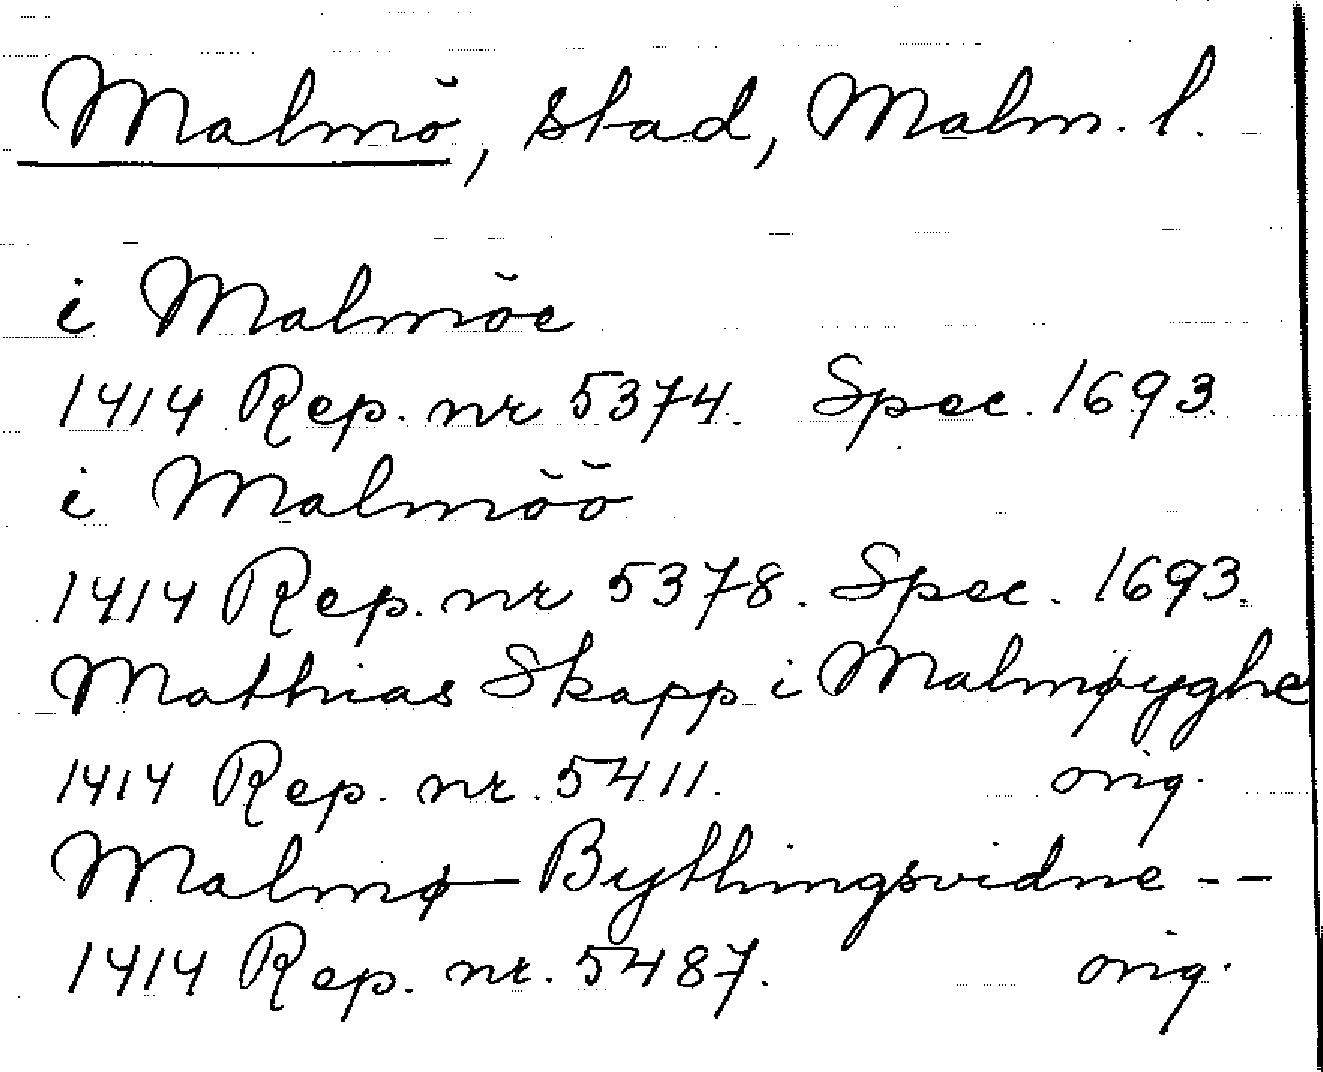 Malmö, stad, Malm. l.
i Malmöe
1414 Rep. nr 5374. Spec. 1693
i Malmöö
1414 Rep. nr 5378. Spec. 1693.
Mathias Skapp i Malmøyghe
1414 Rep. nr. 5411. orig.
Malmø Bythingsvidne --
1414 Rep. nr. 5487. orig.